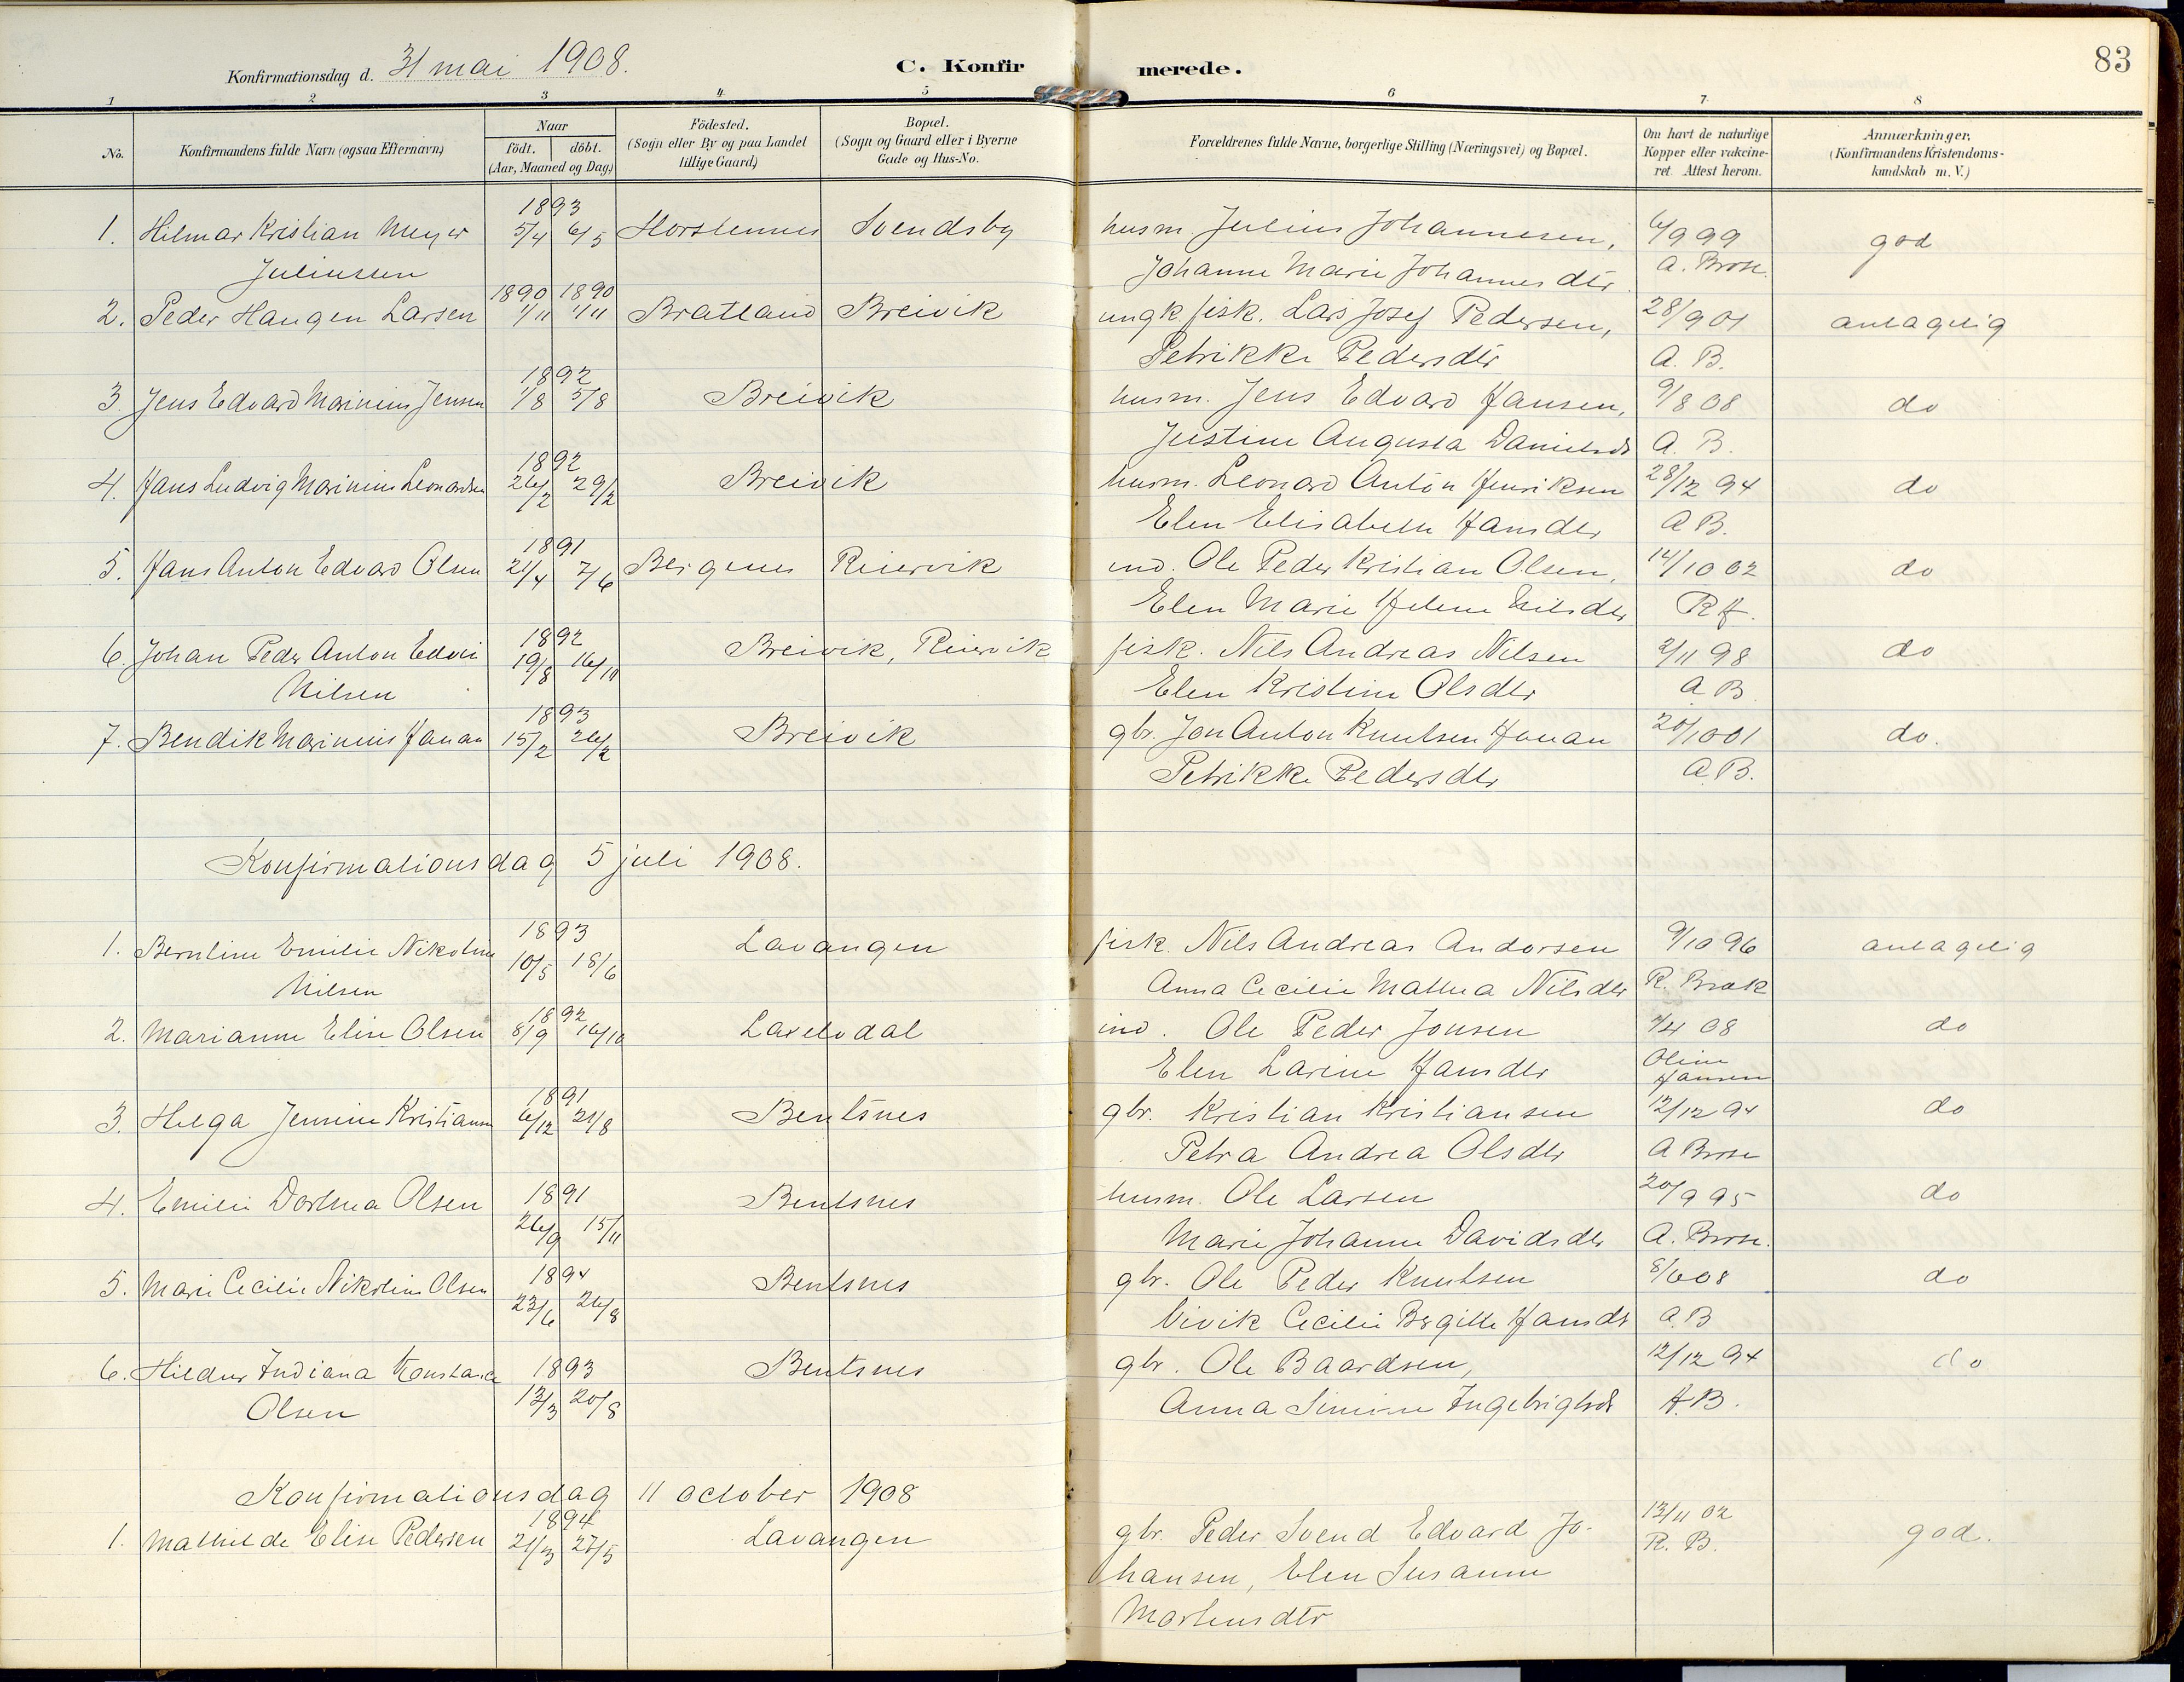 Konfirmationsdag d. 31 mai 1908.
C. Konfirmerede.
83
1 2 3 4 5 6 7 8
No.
Konfirmandens fulde Navn (ogsaa Efternavn)
Naar
födt. döbt.
(Aar, Maaned og Dag)
Födested.
(Sogn eller By og paa Landet
tillige Gaard)
Bopæl.
(Sogn og Gaard eller i Byerne
Gade og Hus-No.
Forældrenes fulde Navne, borgerlige Stilling (Næringsvei) og Bopæl.
Om havt de naturlige
Kopper eller vakcine-
ret. Attest herom.
Anmærkninger,
(Konfirmandens Kristendoms-
kundskab m. V.)
1893
1. Hilmar Kristian Meyer 5/4 6/5 Horstennes Svendsby husm. Julius Johannesen, 6/9 99 god
Juliussen Johanne Marie Johannesdtr. A. Brox.
1890 1890
2. Peder Haugen Larsen 1/11 1/11 Bratland Breivik ungk. fisk. Lars Josef Pedersen, 28/9 01 antagelig
Petrikke Pedersdtr A. B.
1892
3. Jens Edvard Marinius Jensen 1/8 5/8 Breivik husm. Jens Edvard Hansen, 9/8 08 do
Justine Augusta Danielsdt A. B.
1892
4. Hans Ludvig Marinius Leonardsen 26/2 29/2 Breivik husm. Leonard Anton Henriksen 28/12 94 do
Elen Elisabeth Hansdtr A B.
1891
5. Hans Anton Edvard Olsen 21/4 7/6 Bergenes Reiervik ind. Ole Peder Kristian Olsen, 14/10 02 do
Elen Marie Helene Nilsdtr R H.
1892
6. Johan Peder Anton Edvin 19/8 16/10 Breivik, Reiervik fisk. Nils Andreas Nilsen 2/11 98 do
Nilsen Elen Kristine Olsdtr A B.
1893
7. Bendik Marinius Hanan 15/2 26/2 Breivik gbr. Jon Anton Knutsen Hanan 20/10 01 do.
Petrikke Pedersdtr A B.
Konfirmationsdag 5 juli 1908.
1893
1. Berntine Emilie Nikoline 10/5 18/6 Lavangen fisk. Nils Andreas Andorsen 9/10 96 antagelig
Nilsen Anna Cecilie Mathea Nilsdtr R. Brox
1892
2. Marianne Elise Olsen 8/9 16/10 Lakselvdal ind. Ole Peder Jonsen 7/4 08 do
Elen Larine Hansdtr Oline
Hansen
1891
3. Helga Jennine Kristiansen 6/12 21/8 Bentsnes gbr. Kristian Kristiansen 12/12 94 do
Petra Andrea Olsdtr A Brox
4. Emilie Dorthea Olsen 1891 Bentsnes husm. Ole Larsen 20/9 95 do
26/9 15/11 Marie Johanne Davidsdtr A. Brox.
5. Marie Cecilie Nikoline Olsen 1894 Bentsnes gbr. Ole Peder Knutsen 8/6 08 do
23/6 26/8 Vivik Cecilie Bergitte Hansdt A. B
6. Hildur Indiana Konstance 1893 Bentsnes gbr. Ole Baardsen, 12/12 94 do
Olsen 12/3 20/8 Anna Simine Ingebrigtsdt A. B.
Konfirmationsdag 11 october 1908
1894
1. Mathilde Elise Pedersen 21/3 27/5 Lavangen gbr. Peder Svend Edvard Jo- 13/11 02 god.
hansen, Elen Susanne R. B.
Mortensdtr